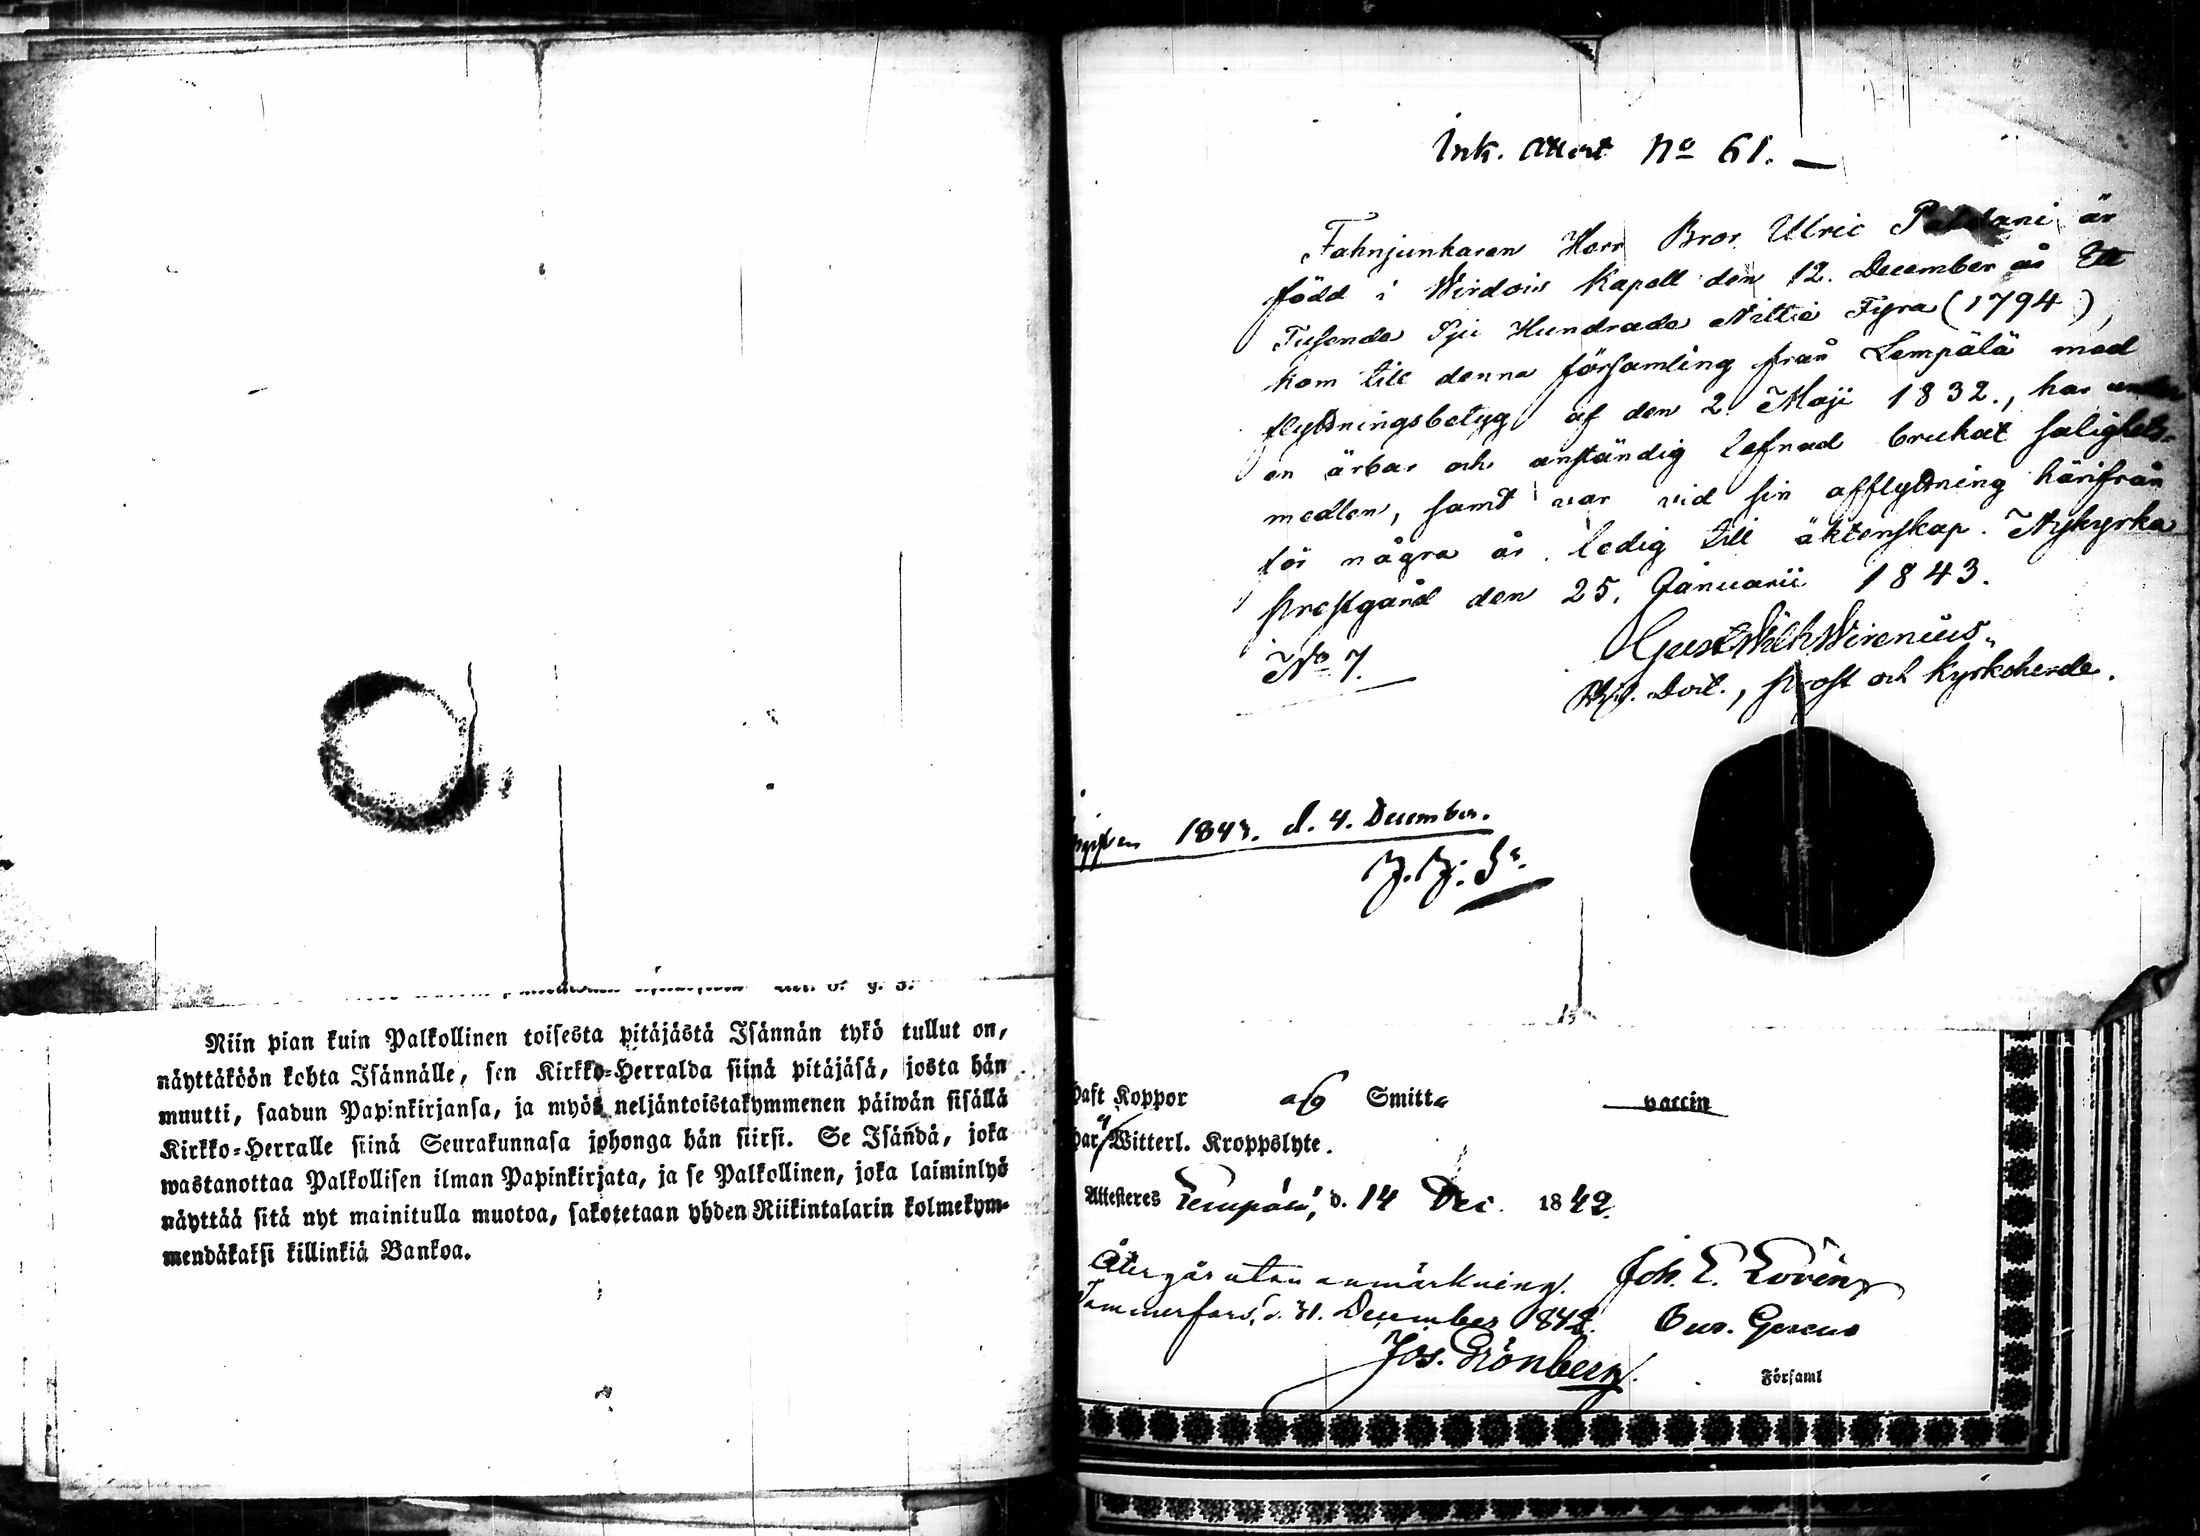 Niin pian kuin Palkollinen toisesta pitäjästä Isännän tykö tullut on,
näyttäköön kohta Isännälle, sen Kirkko-Herralda siinä pitäjäsä, josta hän
muutti, saadun Papinkirjansa, ja myös neljäntoistakymmenen päiwän sisällä
Kirkko-Herralle siinä Seurakunnasa johonga hän siirsi. Se Isändä, joka
wastanottaa Palkollisen ilman Papinkirjata, ja se Palkollinen, joka laiminlyö
näyttää sitä nyt mainitulla muotoa, sakotetaan yhden Riikintalarin kolmekym-
mendäkaksi killinkiä Bankoa.
Ink. Attest No 61.
Fahnjunkaren Herr Bror Ulric är
född i Wirdois Kapell den 12. December år Ett
Tusende Sju Hundrade Nittio Fyra (1794),
kom till denna församling från Lempälä med
flyttningsbetyg af den 2 Maji 1832., har under
en ärbar och anständig lefnad brukat salighets-
medlen, samt var vid sin afflyttning härifrån
för några år ledig till äktenskap. Nykyrka
prestgård den 25. Januarii 1843.
No 7.
Gust Wilh Wirenius
prost och Kyrkoherde.
1843. d. 4. December.
J. J. S
haft Koppor Smitt vaccin
har Witterl. Kroppslyte.
Attesteres d. 14 Dec. 1842.
Återgår utan anmärkning. Joh. E. Lovén
Tammerfors, d. 31. December 1842.
Jos. Grönberg.
Församl